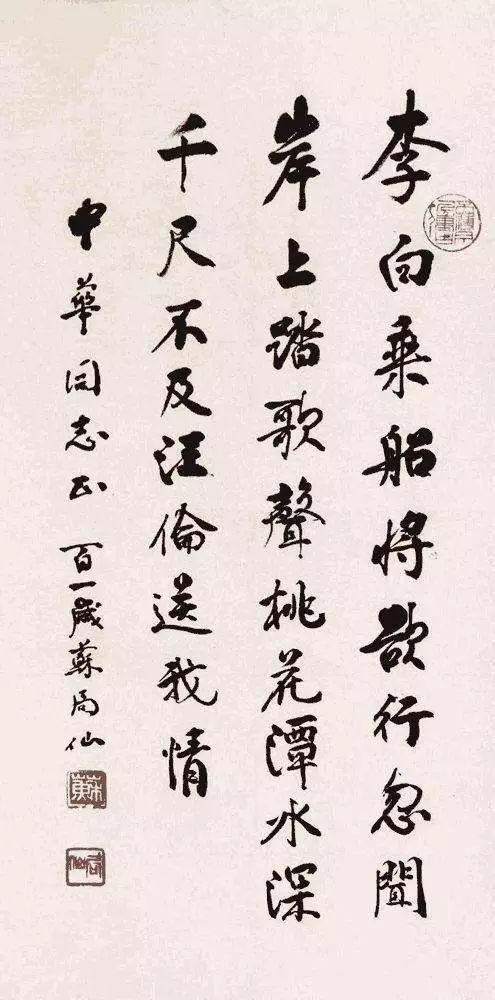 李白乘船将欲行忽聞
岸上踏歌聲桃花潭水深
千尺不及汪倫送我情
中華同志正 百一歲蘇局仙
蘇
局仙